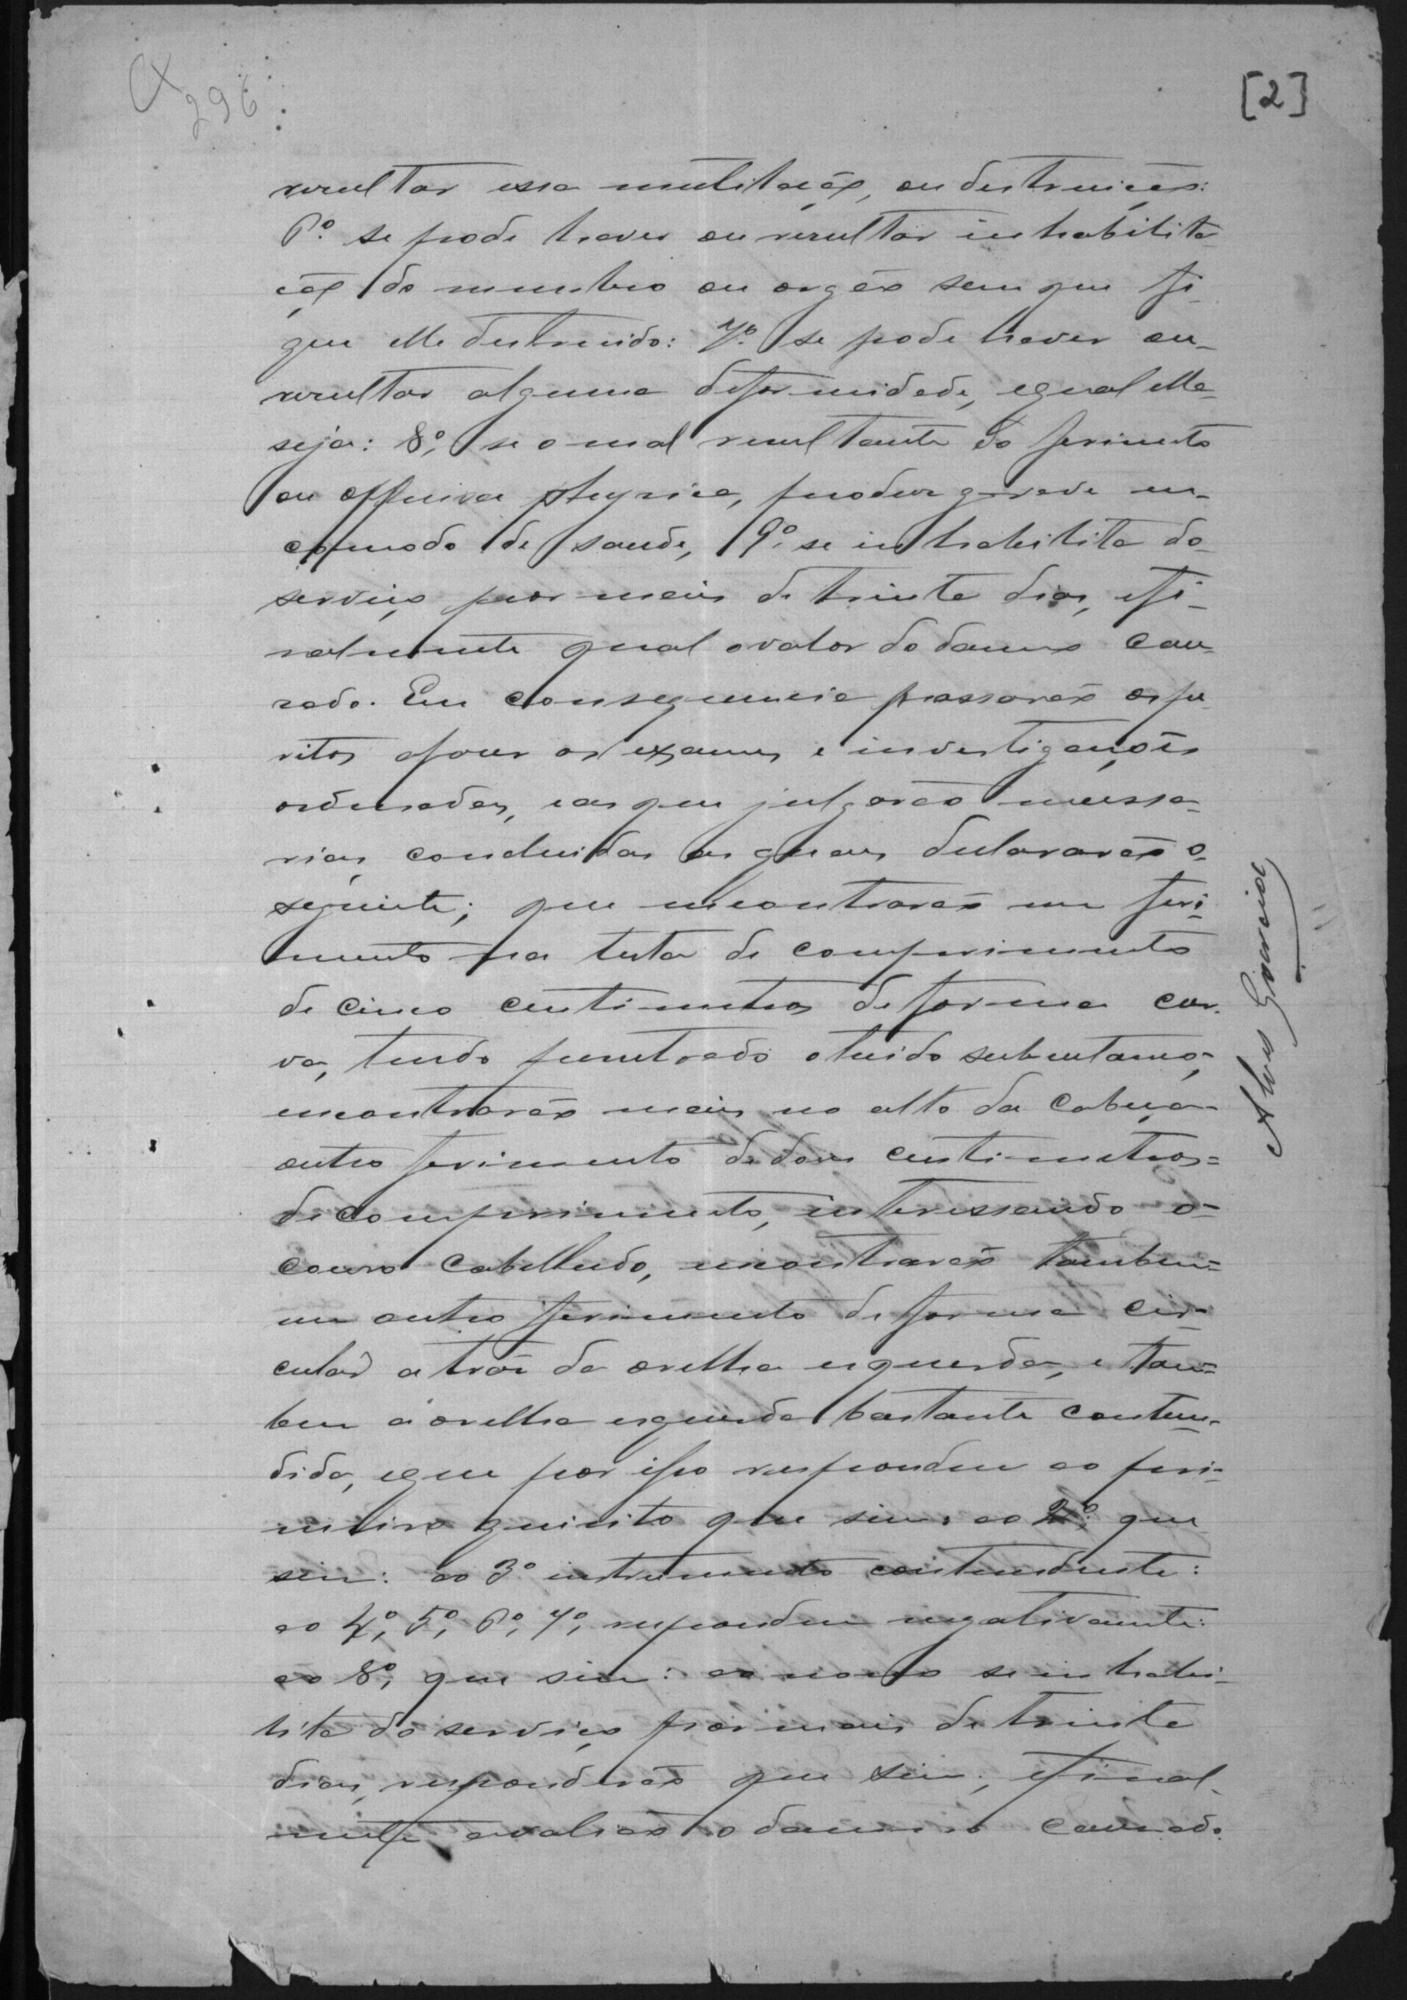 Cx
296
[2]
resultar essa mutilação, ou destruição:
6º se pode haver ou resultar inhabilita
ção do membro ou orgão sem que fi-
que elle destruido: 7º se pode haver ou-
resultar alguma deformidade, e qual ella
seja: 8º, se o mal resultante do ferimento
ou offensa physica, produz grave in-
commodo de saude, 9º se inhabilita do-
serviço por mais de trinta dias, e fi-
nalmente qual o valor do damno cau-
sado. Em consequencia passarão os pe-
ritos a fazer os exames e investigações
ordenadas, e as que julgarão necessa-
rias, concluidas as quaes declararão o-
seguinte; que encontrarão um feri-
mento na testa de comprimento
de cinco centimetros de forma cur-
va, tendo penetrado o tecido subcutaneo,
encontrarão mais no alto da cabeça-
outro ferimento de dous centimetros=
de comprimento, interessando o-
couro cabelludo, encontrarão tambem=
um outro ferimento de forma cir-
cular a traz da orelha esquerda, e tam=
bem a orelha esquerda bastante contun-
dida, e que por isso respondem ao pri-
meiro quisito que sim: ao 2º, que
sim: ao 3º instrumento contundente:
ao 4º, 5º, 6º, 7º, respondem negativamente:
ao 8º, que sim: ao nono se inhabi-
lita do serviço por mais de trinta
dias, responderão que sim; e final-
mente avalião o damno causado
Alves Gouveia